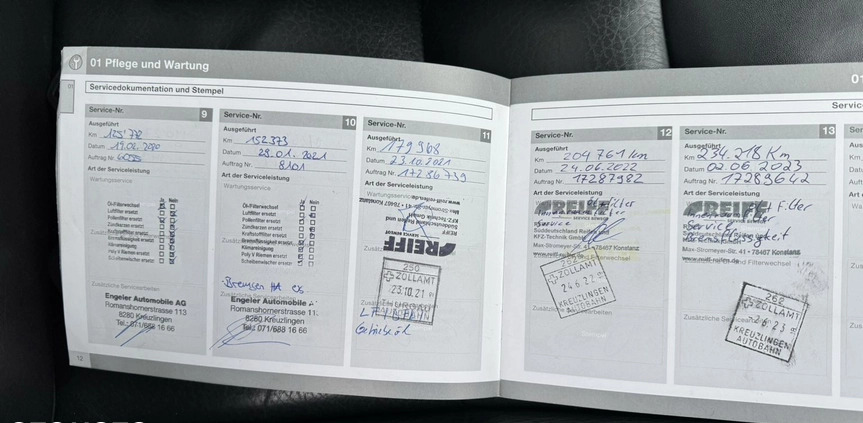 01 Pflege und Wartung
Servicedokumentation und Stempel
Service-Nr. 9
Ausgeführt
Km 125'772
Datum 19.02.2020
Auftrag Nr.
Art der Serviceleistung
Wartungsservice
Ja Nein
Öl-/Filterwechsel
Luftfilter ersetzt
Pollenfilter ersetzt
Zündkerzen ersetzt
Kraftstofffilter ersetzt
Bremsflüssigkeit ersetzt
Klimareinigung
Poly V Riemen ersetzt
Scheibenwischer ersetzt
Zusätzliche Servicearbeiten
Engeler Automobile AG
Romanshornerstrasse 113
8280 Kreuzlingen
Tel.: 071/688 16 66
12
Service-Nr. 10
Ausgeführt
Km 152.373
Datum 28.01.2021
Auftrag Nr. 8101
Art der Serviceleistung
Wartungsservice
Ja Nein
Öl-/Filterwechsel
Luftfilter ersetzt
Pollenfilter ersetzt
Zündkerzen ersetzt
Kraftstofffilter ersetzt
Bremsflüssigkeit ersetzt
Klimareinigung
Poly V Riemen ersetzt
Scheibenwischer ersetzt
Bremsen HA
Engeler Automobile
Romanshornerstrasse 11
8280 Kreuzlingen
Tel.: 071/688 16 66
Service-Nr. 11
Ausgeführt
Km 179968
Datum 23.10.2021
Auftrag Nr. 17286759
Art der Serviceleistung
www.reiff-reifen.de
Max-Stromeyer-Str. 41 • 78467 Konstanz
KFZ-Technik GmbH
Süddeutschland Reifen und
REIFF
250
ZOLLAMT
23.10.21
THURGAU
AUTOBAHN
Getriebeöl
01
Service
Service-Nr. 12
Ausgeführt
Km 204761 km
Datum 24.06.2022
Auftrag Nr. 17287982
Art der Serviceleistung
REIFF
Service
Süddeutschland Reifen
KFZ-Technik GmbH
Max-Stromeyer-Str. 41 • 78467 Konstanz
www.reiff-reifen.de
ZOLLAMT
24.6.22
KREUZLINGEN
AUTOBAHN
Service-Nr. 13
Ausgeführt
Km 234.218 Km
Datum 02.06.2023
Auftrag Nr. 17289642
Art der Serviceleistung
REIFF
Filter
Service
Max-Stromeyer-Str. 41 • 78467 Konstanz
www.reiff-reifen.de
Zusätzliche Servicearbeiten
262
ZOLLAMT
-2.6.23
KREUZLINGEN
AUTOBAHN